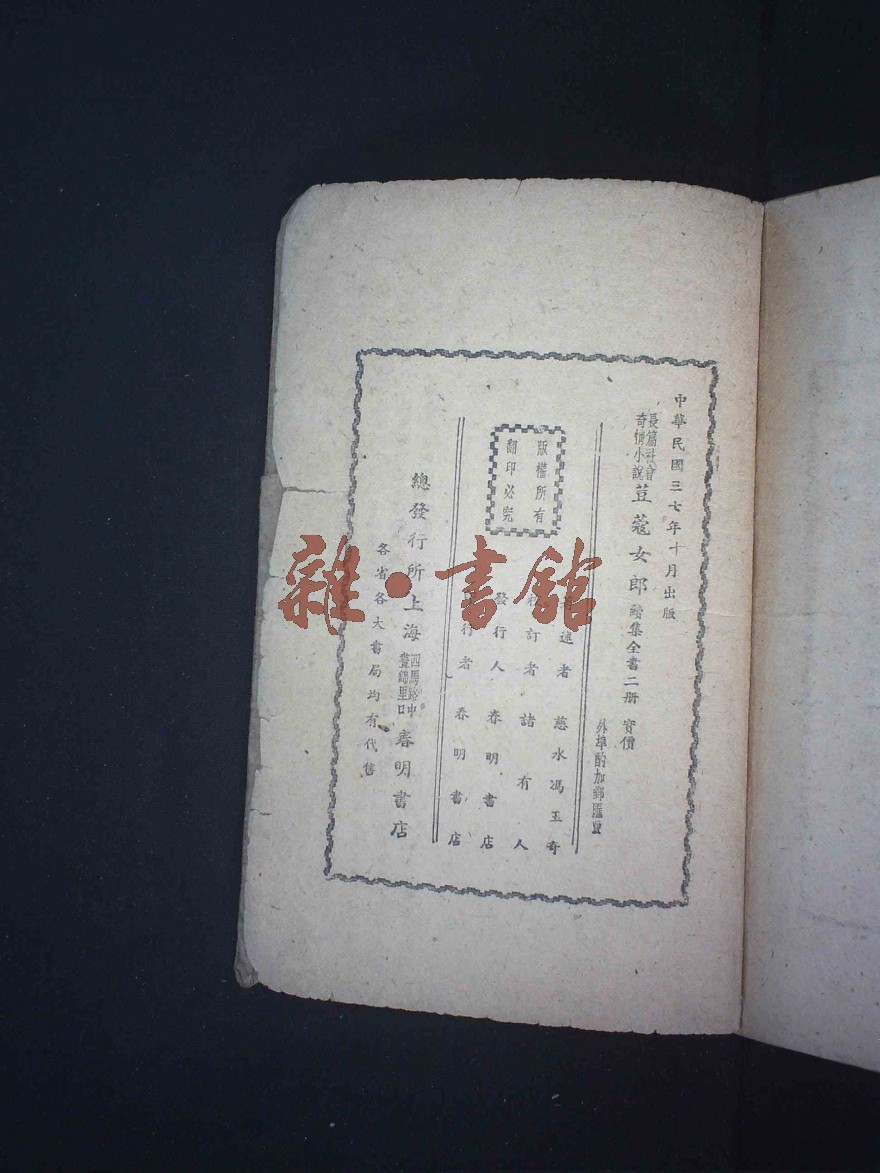 中華民國三七年十月出版
長篇社會
奇情小說
荳蔻女郎續集全書二册 實價
外埠酌加郵匯費
版權所有
翻印必究
述者 慈水馮玉奇
訂者 諸有人
發行人 春明書店
行者 春明書店
總發行所上海
四馬路中
晝錦里口
春明書店
各省各大書局均有代售
雜·書館